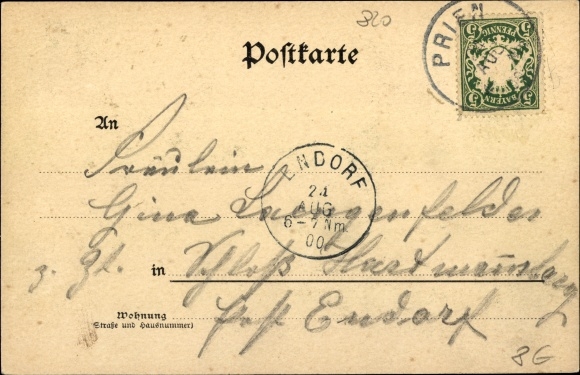 820
PRIEN
AUG
5 PFENNIG 5
5 BAYERN 5
Postkarte
An
Fräulein
Gina Langenfelder
ENDORF
24
AUG
6-7 Nm.
00
z. Zt. in Schloß Hartmannsberg
Wohnung
(Straße und Hausnummer)
Post Endorf
8G